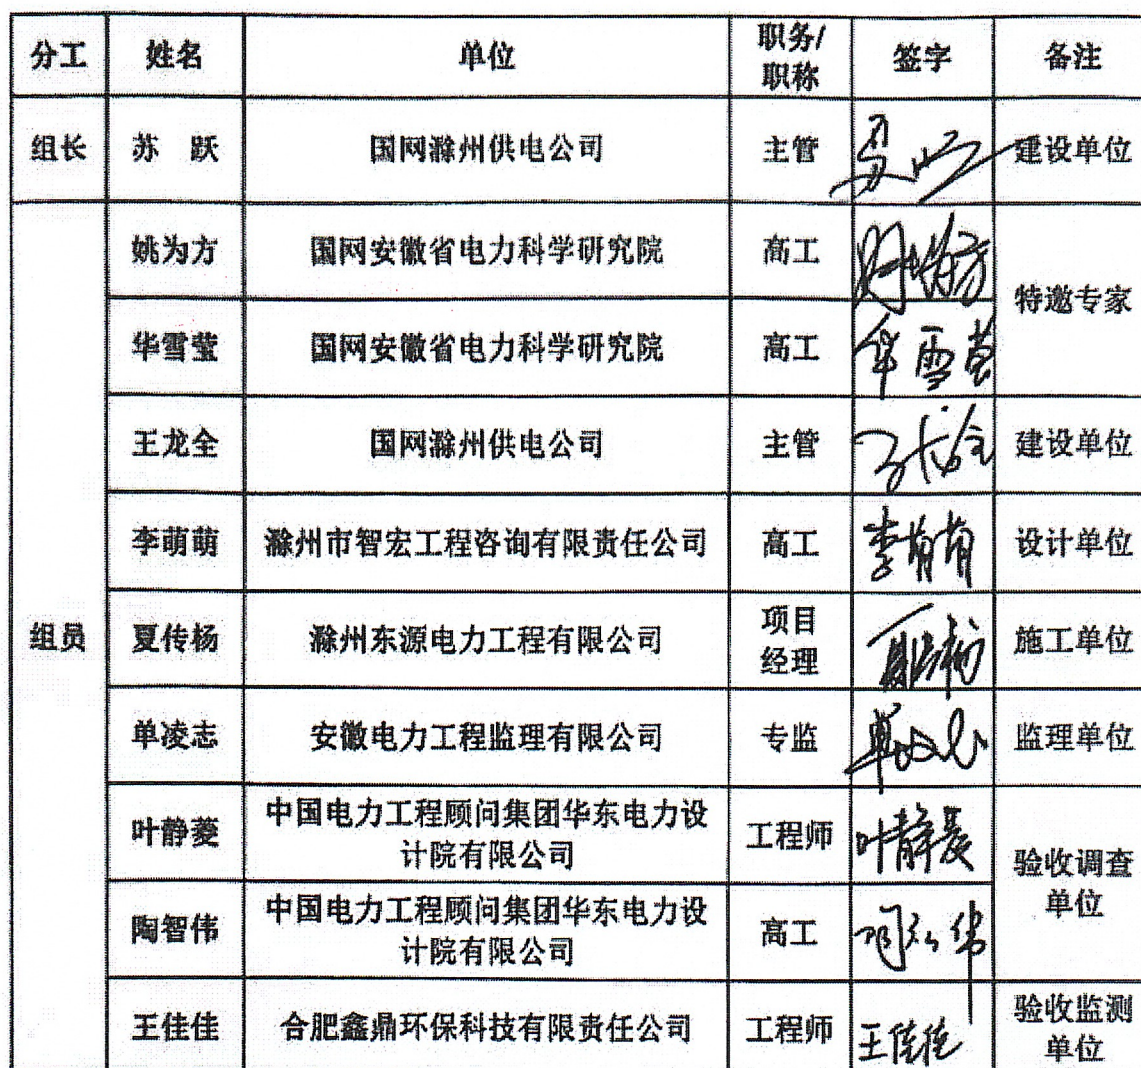 分工 姓名 单位 职务/职称 签字 备注
组长 苏 跃 国网滁州供电公司 主管 建设单位
组员 姚为方 国网安徽省电力科学研究院 高工 特邀专家
华雪莹 国网安徽省电力科学研究院 高工 华雪莹
王龙全 国网滁州供电公司 主管 建设单位
李萌萌 滁州市智宏工程咨询有限责任公司 高工 李萌萌 设计单位
夏传杨 滁州东源电力工程有限公司 项目经理 施工单位
单凌志 安徽电力工程监理有限公司 专监 监理单位
叶静菱 中国电力工程顾问集团华东电力设计院有限公司 工程师 叶静菱 验收调查单位
陶智伟 中国电力工程顾问集团华东电力设计院有限公司 高工
王佳佳 合肥鑫鼎环保科技有限责任公司 工程师 王佳佳 验收监测单位